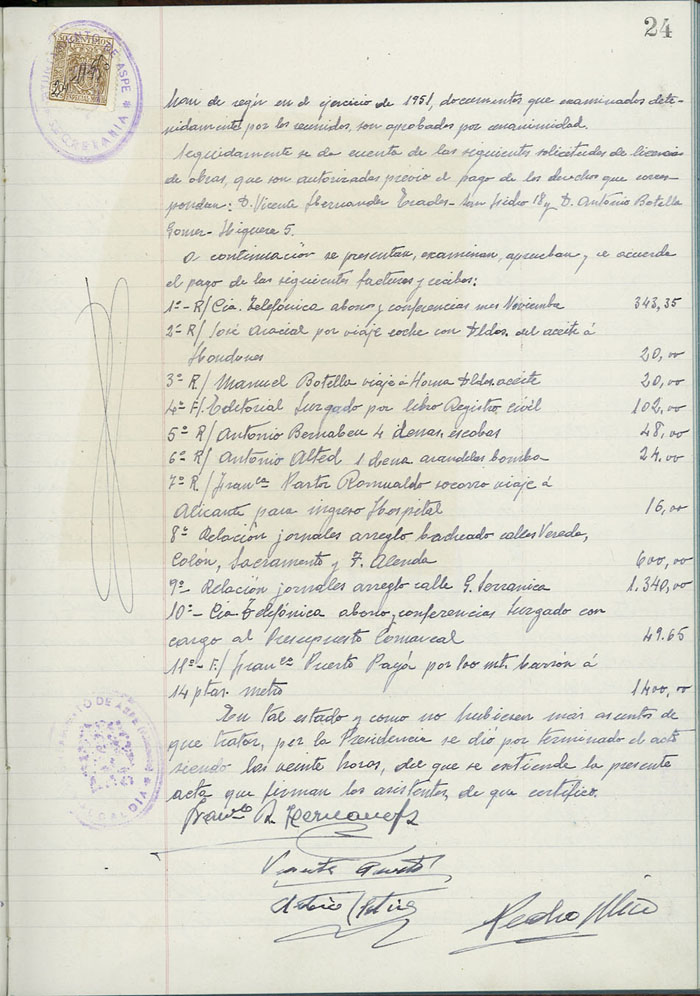 24
AYUNTAMIENTO DE ASPE
SECRETARIA
han de regir en el ejercicio de 1951, documentos que examinados dete-
nidamente por los reunidos, son aprobados por unanimidad.
Seguidamente se da cuenta de las siguientes solicitudes de licencia
de obras, que son autorizadas previo el pago de los derechos que corres-
pondan: D. Vicente Hernandez - San Isidro 18 y D. Antonio Botella
Gomez - Higuera 5.
A continuación se presentan, examinan, aprueban, y se acuerda
el pago de las siguientes facturas y recibos:
1º - R/ Cia. Telefónica abono y conferencias mes Noviembre 343,35
2º R/ José por viaje coche con del aceite á
Hondones 20,00
3º R/ Manuel Botella viaje á aceite 20,00
4º F/. Editorial Juzgado por libro Registro civil 102,00
5º R/ Antonio Bernabeu 4 escobas 48,00
6º R/ Antonio Alted 1 arandelas bomba 24.00
7º R/ Franca Pastor Romualdo socorro viaje á
Alicante para ingreso Hospital 16,00
8º Relación jornales arreglo bacheado calles Vereda,
Colón, Sacramento y F. Alenda 600,00
9º Relación jornales arreglo calle G. Serranica 1.340,00
10º - Cia Telefónica abono y conferencias Juzgado con
cargo al Presupuesto Comarcal 49.65
11º - F/ Franco Puerto Payá por 100 mt. á
14 ptas. metro 1400,00
En tal estado y como no hubiesen más asuntos de
que tratar, por la Presidencia se dió por terminado el acto
siendo las veinte horas, de que se extiende la presente
acta que firman los asistentes, de que certifico.
AYUNTAMIENTO DE ASPE
ALCALDIA
Vicente
Pedro Mico